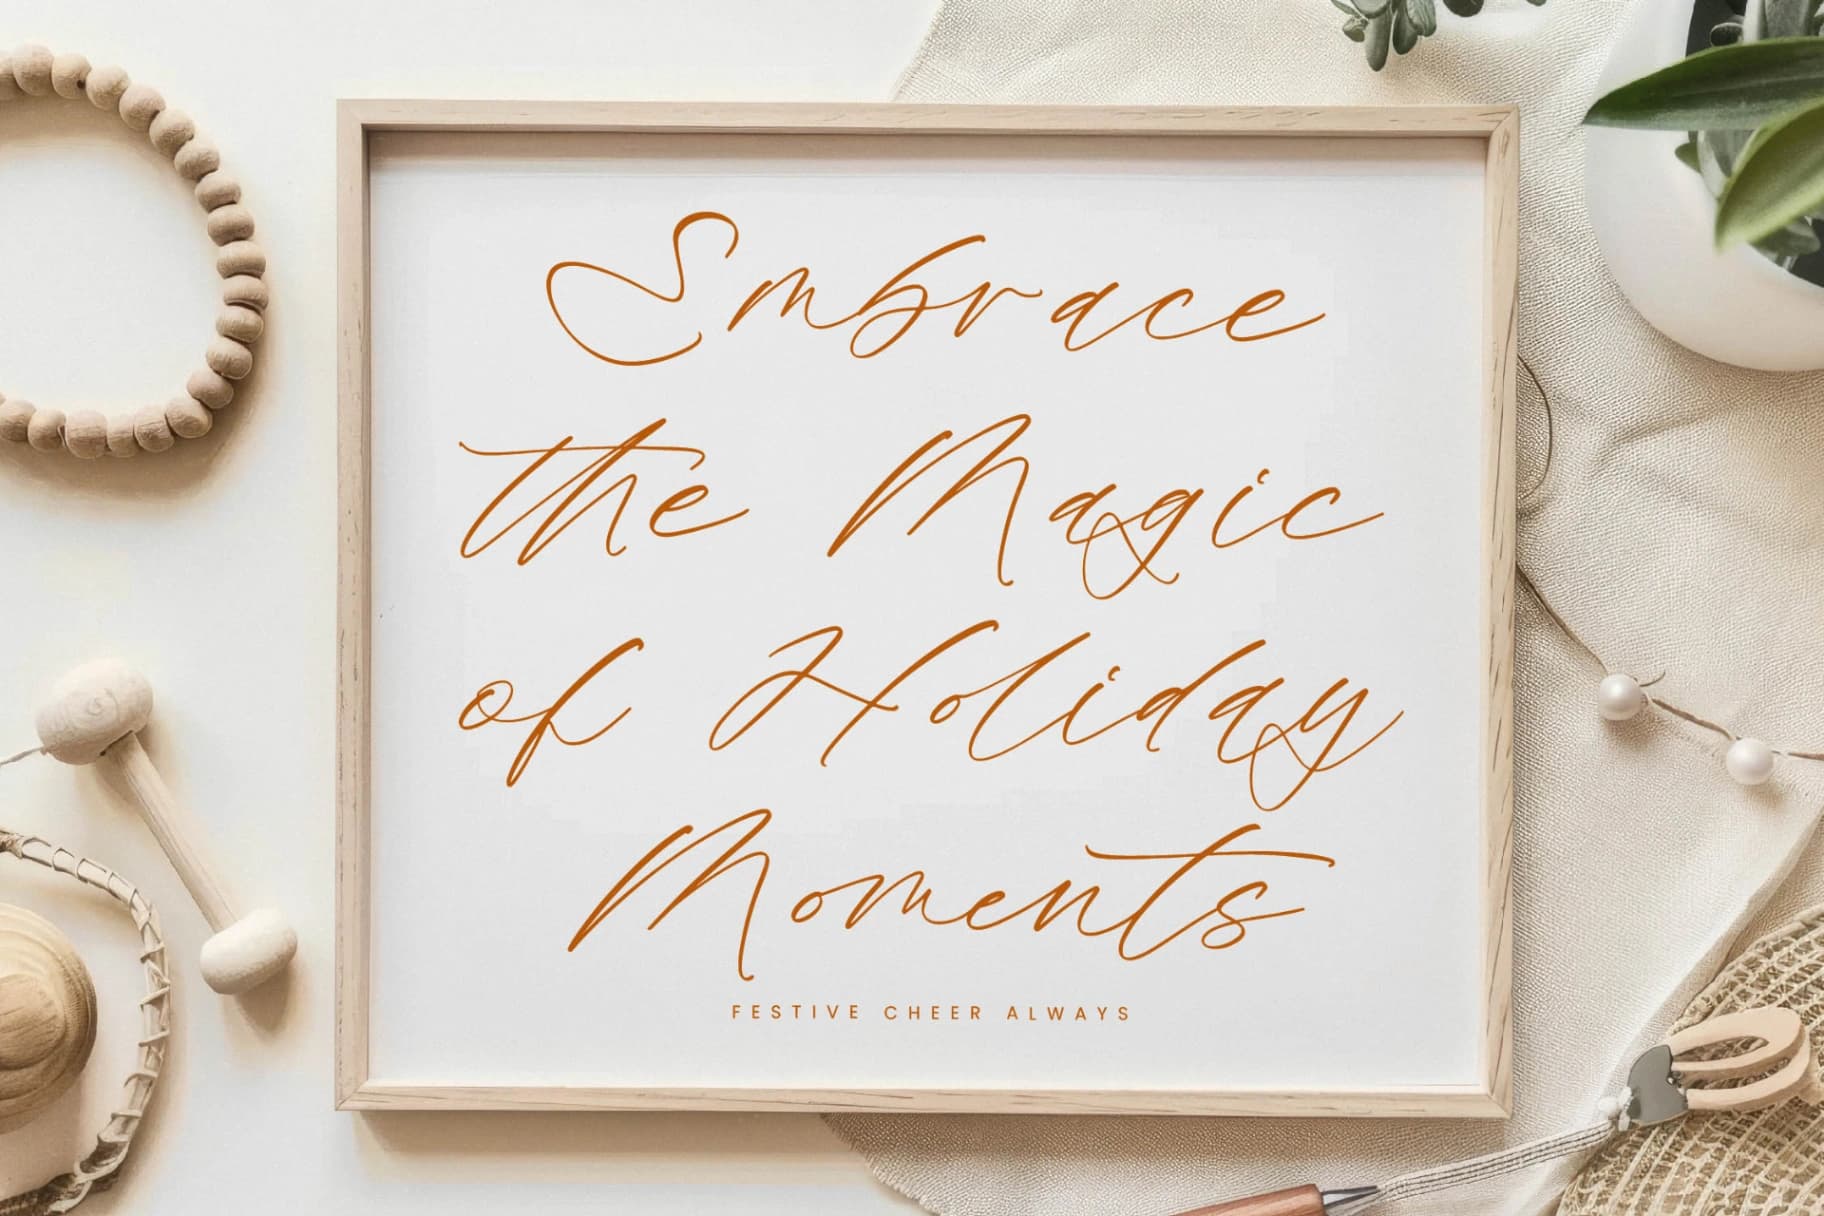 Embrace
the Magic
of Holiday
Moments
FESTIVE CHEER ALWAYS